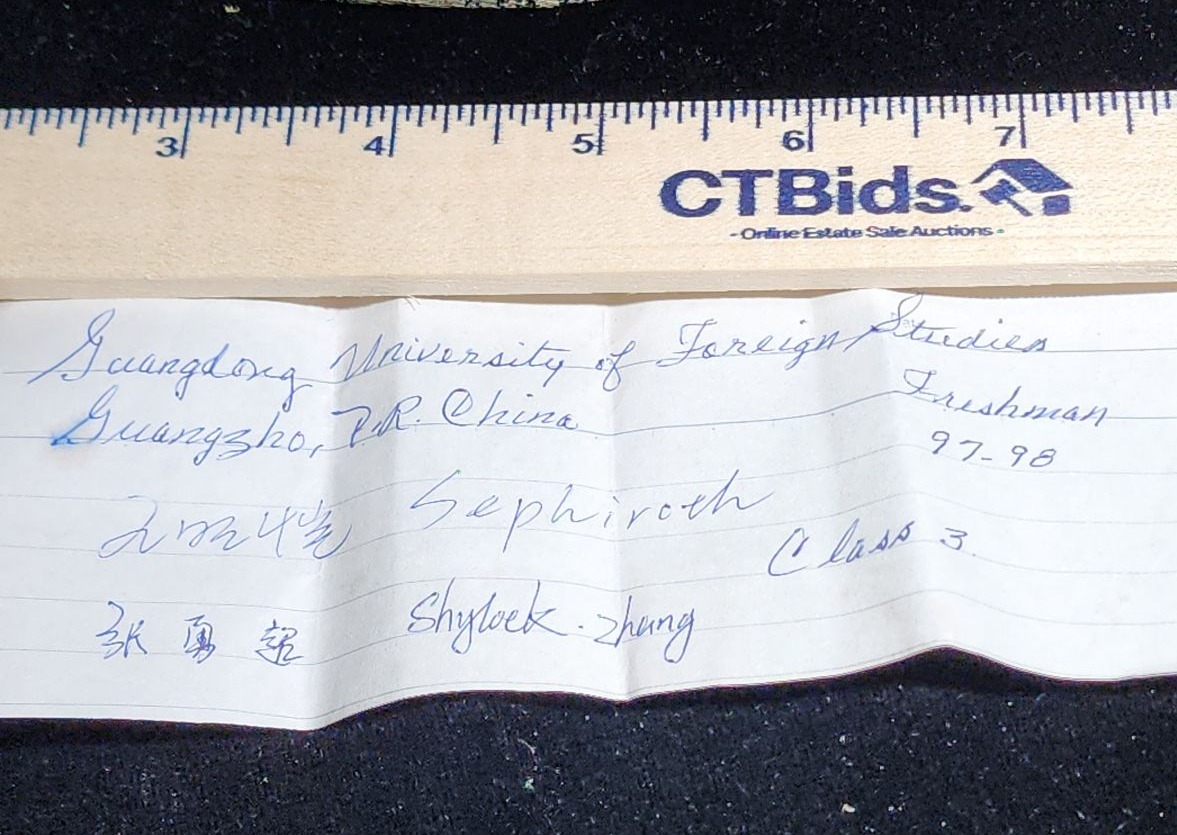 3 4 5 6 7
CTBids.
- Online Estate Sale Auctions -
Guangdong University of Foreign Studies
Guangzho, P.R. China
Freshman
97-98
Sephiroth
Class 3.
张勇超 Shylock. Zhang